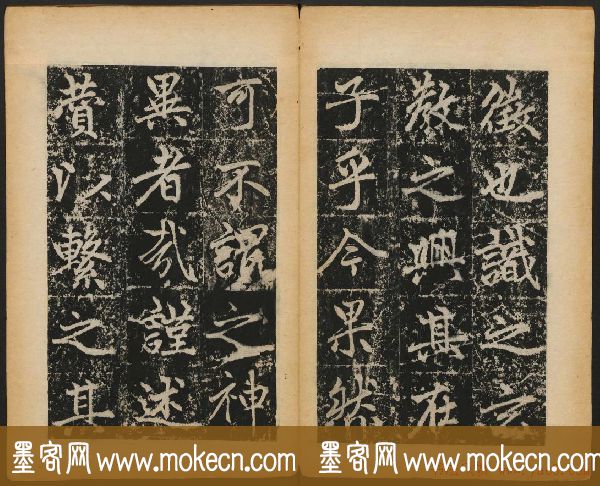 徵也識之云
教之興其在
子乎今果然
可不謂之神
異者哉謹述
贊以繫之其
墨客网 www.mokecn.com 墨客网 www.mokecn.com